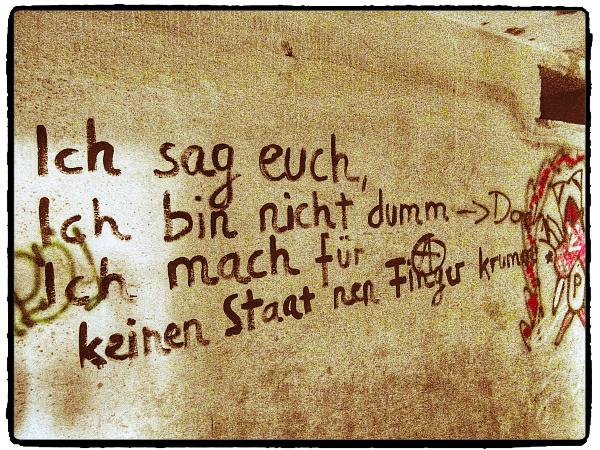 Ich sag euch,
Ich bin nicht dumm →
Ich mach für
keinen Staat nen Finger krumm
P